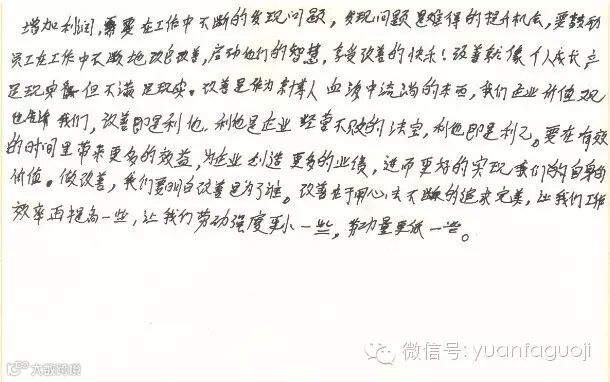 增加利润，需要在工作中不断的发现问题，发现问题是难得的提升机会，要鼓励
员工在工作中不断地改良改善，启动他们的智慧，享受改善的快乐！改善就像个人成长，立
足现实但不满足现实。改善是作为 人血液中流淌的东西，我们企业价值观
也告诉我们，改善即是利他，利他是企业经营不败的法宝，利他即是利己。要在有效
的时间里带来更多的效益，为企业创造更多的业绩，进而更好的实现我们的自身的
价值。做改善，我们要明白改善是为了谁。改善在于用心去不断的追求完美，让我们工作
效率再提高一些，让我们劳动强度更小一些，劳动量更低一些。
微信号: yuanfaguoji